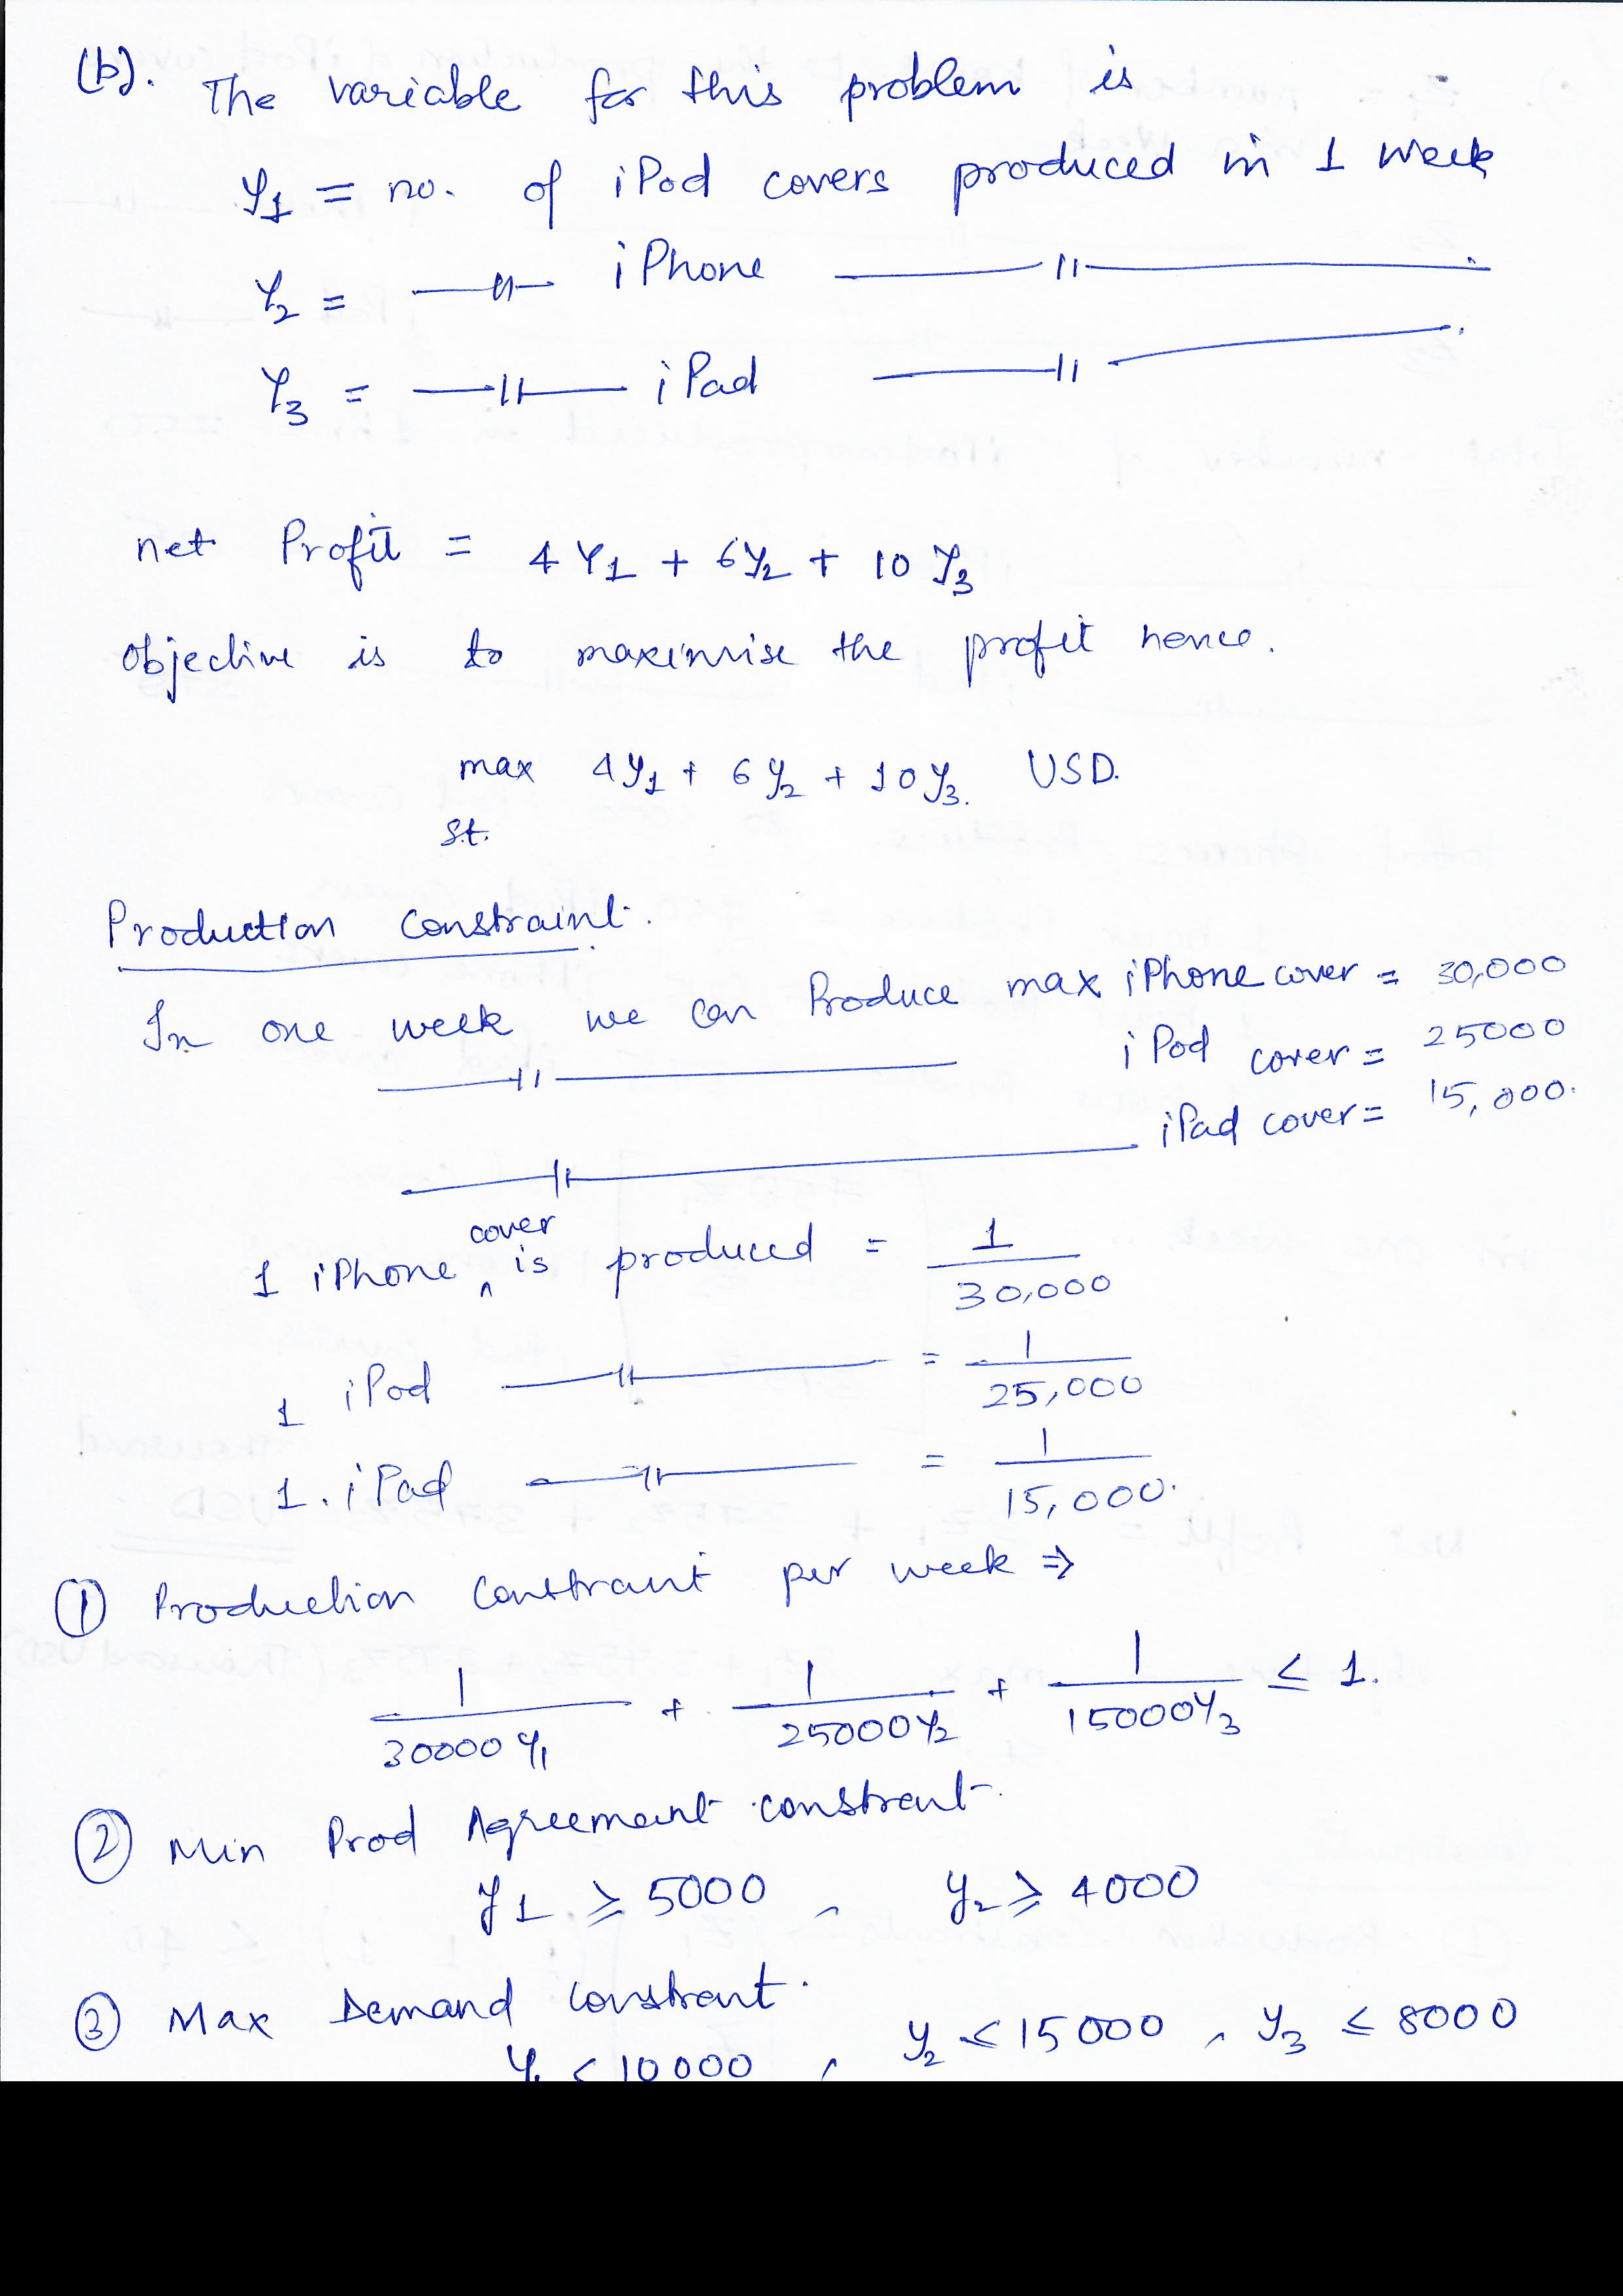 (b). The variable for this problem is
y1 = no. of iPod covers produced in 1 week
y2 = —〃— iPhone —〃—
y3 = —〃— iPad —〃—
net Profit = 4 y1 + 6y2 + 10 y3
objective is to maximise the profit hence.
max 4y1 + 6 y2 + 10y3. USD.
s.t.
Production Constraint.
In one week we can Produce max iPhone cover = 30,000
—〃— iPod cover = 25000
—〃— iPad cover = 15,000.
1 iPhone cover is produced = 1/30,000
1 iPod —〃— = 1/25,000
1. iPad —〃— = 1/15,000.
① Production Constraint per week ⇒
1/30000 y1 + 1/25000 y2 + 1/15000 y3 ≤ 1.
② Min Prod Agreement constrent.
y1 ≥ 5000 , y2 ≥ 4000
③ Max Demand constrent.
y1 ≤ 10000 , y2 ≤ 15000 , y3 ≤ 8000